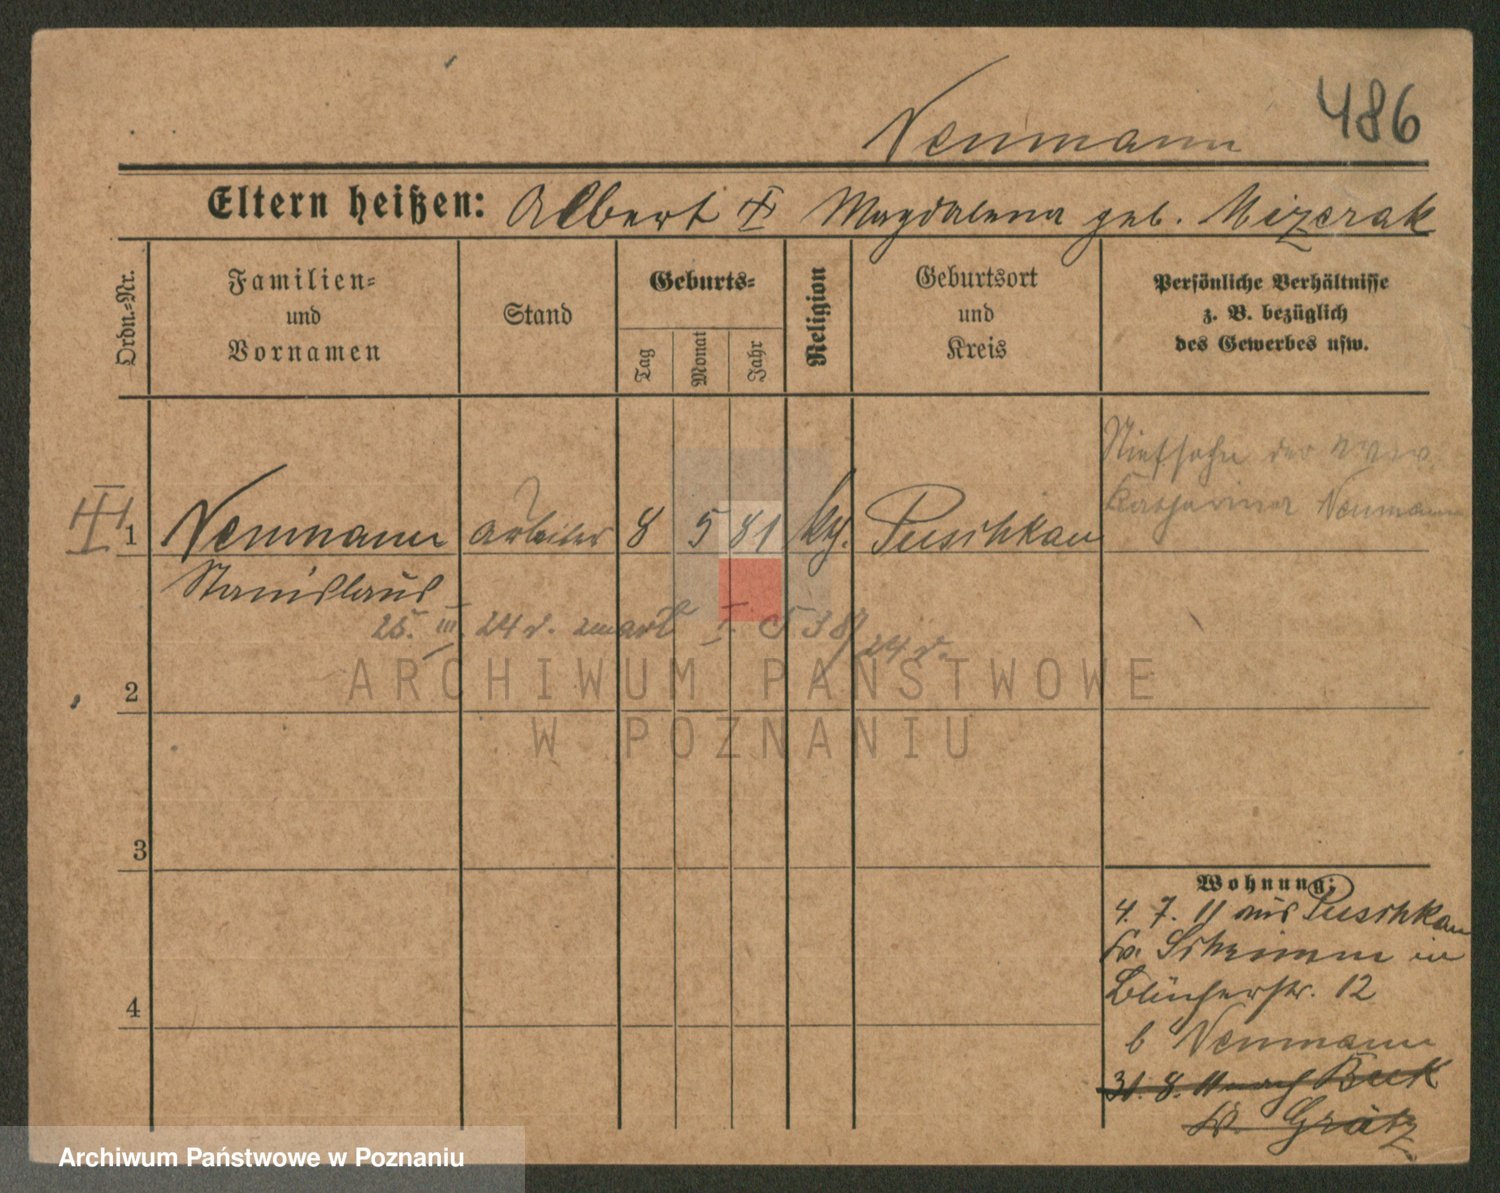 Neumann 486
Eltern heißen: Albert Magdalena geb. Mizerak
Ordn.-Nr.
Familien- und Vornamen
Stand
Geburts-
Tag
Monat
Jahr
Religion
Geburtsort und Kreis
Persönliche Verhältnisse z. B. bezüglich des Gewerbes usw.
Stiefsohn der
Katharina Neumann
1 Neumann Arbeiter 8 5 81 kth. Puschkau
Stanislaus
25. III. 24 v. I. 538/24 v.
2
3
4
Wohnung:
4. 7. 11 aus Puschkau
Kr. Schrimm in
Blücherstr. 12
b Neumann
31. 8. 11 nach Buk
Kr. Grätz
ARCHIWUM PAŃSTWOWE
W POZNANIU
Archiwum Państwowe w Poznaniu